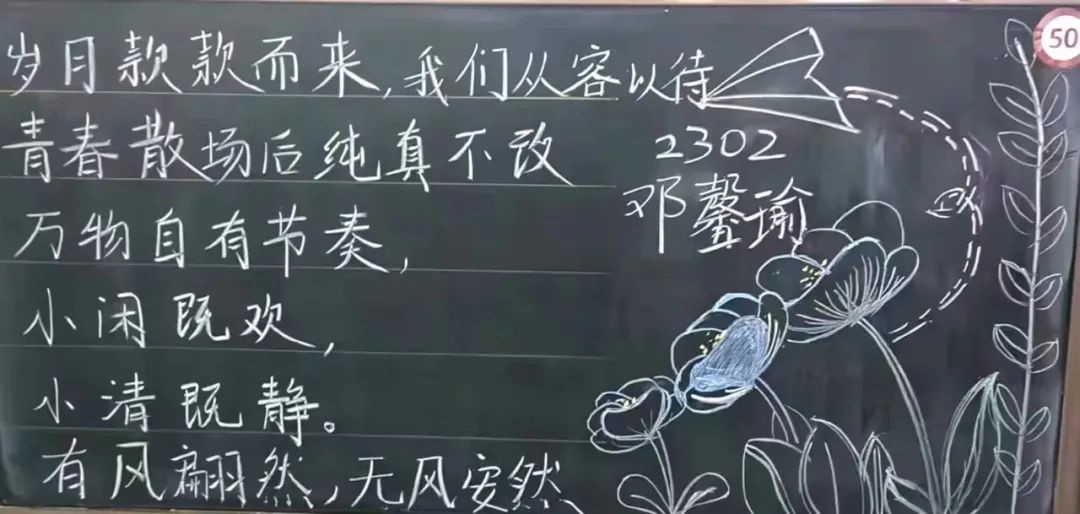 岁月款款而来,我们从容以待
青春散场后纯真不改
万物自有节奏,
小闲既欢,
小清既静。
有风翩然,无风安然
2302
邓馨瑜
50